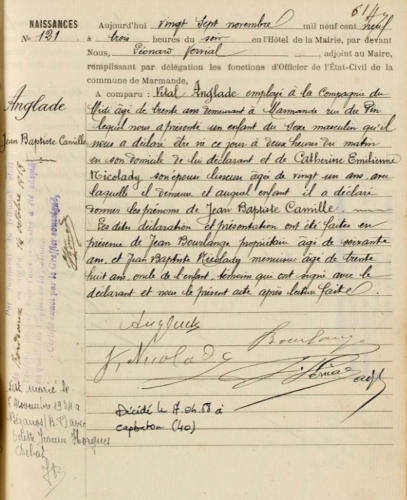 NAISSANCES
Nº 121
Anglade
Jean Baptiste Camille
Aujourd'hui vingt sept novembre mil neuf cent neuf
à trois heures du soir en l'Hôtel de la Mairie, par devant
Nous, Léonard adjoint au Maire,
remplissant par délégation les fonctions d'Officier de l'État-Civil de la
commune de Marmande.
A comparu : Vital Anglade employé à la Compagnie du
Midi âgé de trente ans demeurant à Marmande rue du
lequel nous a présenté un enfant du sexe masculin qu'il
nous a déclaré être né ce jour à deux heures du matin
en son domicile de lui déclarant et de Catherine Emilienne
Nicolady, son épouse âgée de vingt un ans avec
laquelle il demeure et auquel enfant il a déclaré
donner les prénoms de Jean Baptiste Camille.
Les dites déclaration et présentation ont été faites en
présence de Jean Bourlange propriétaire âgé de soixante
ans, et Jean Baptiste Nicolady menuisier âgé de trente
huit ans, oncle de l'enfant, témoins qui ont signé avec le
déclarant et nous le présent acte après lecture faite.
Anglade
Bourlange
Nicolady
adjt
Décédé le 17.04.68 à
capbreton (40)
Est marié le
novembre 1934 à
Bizanos (B.P) avec